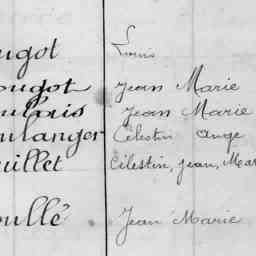 ugot Louis
ougot Jean Marie
Jean Marie
oulanger Célestin ange
uillet Célestin, Jean, Mar
oullé Jean Marie